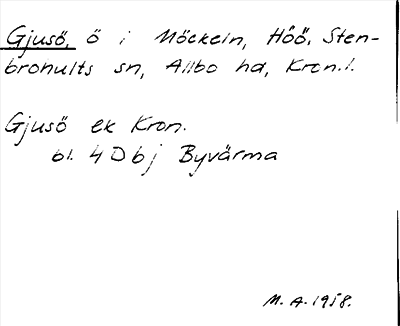 Gjusö, ö i Möckeln, Höö, Sten-
bronults sn, Allbo hd, Kron.l.
Gjusö ek Kron.
bl. 4 D b j Byvärma
M. A. 1958.